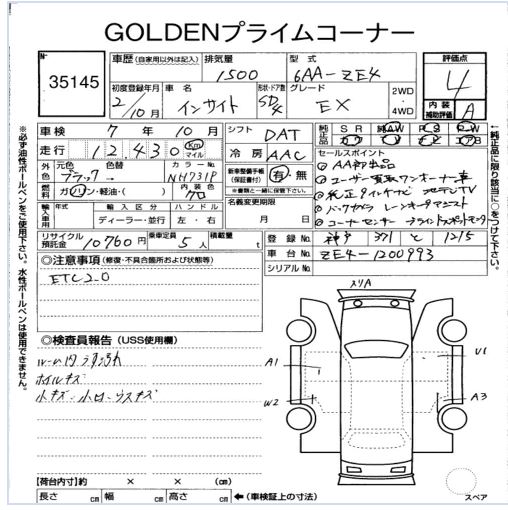 GOLDENプライムコーナー
No 35145
車歴 (自家用以外は記入) 排気量 1500 型式 6AA-ZE4 評価点 4
初度登録年月 2/10月 車名 インサイト 形状・ドア数 5D/4 グレード EX 2WD・4WD 内装補助評価 A
車検 7年10月 シフト DAT 純正品 SR AW PS PW
走行 12,430 Km マイル 冷房 AAC セールスポイント
①AA初出品
外色 元色 ブラック 色替 → カラーNo. NH731P 新車整備手帳(保証書付) 有・無 ※書類と一緒に保管下さい。
②ユーザー買取ワンオーナー車
燃料 ガソリン・軽油・( ) 内装色 クロ
輸入車用 年式 輸入区分 ディーラー・並行 ハンドル 左・右 名義変更期限 月 日
リサイクル預託金 10760円 乗車定員 5人 積載量 t
登録No. 神戸 371 1215
車台No. ZE4-1200993
シリアルNo.
◎注意事項 (修復・不具合箇所および状態等)
ETC2.0
◎検査員報告 (USS使用欄)
ルーム内うす汚れ
ホイルキズ
小キズ
メリA
A1
U1
W2
A3
【荷台内寸】約 × × (cm)
長さ cm 幅 cm 高さ cm ←(車検証上の寸法)
スペア
※必ず油性ボールペンをご使用下さい。水性ボールペンは使用できません。
←純正品に限り該当に○をつけて下さい。